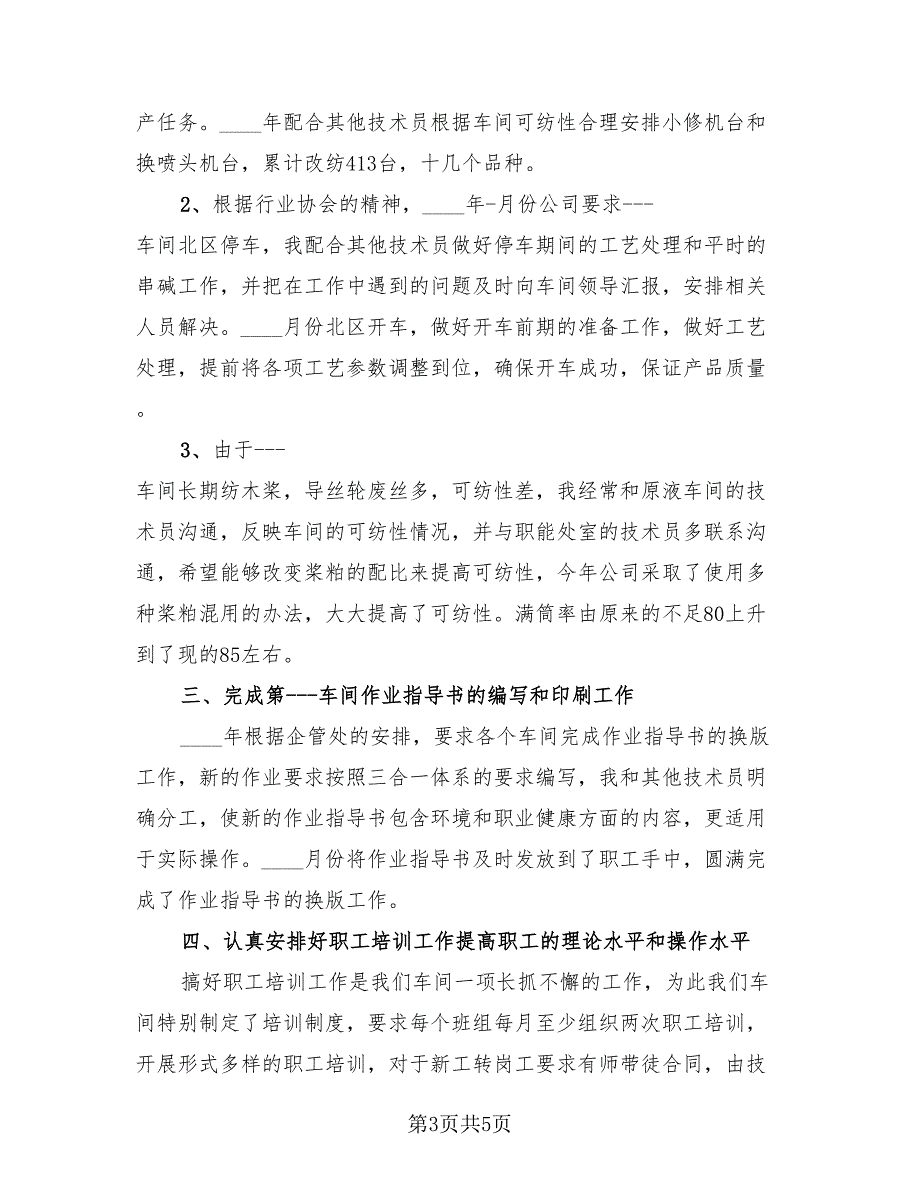 产任务。____年配合其他技术员根据车间可纺性合理安排小修机台和
换喷头机台，累计改纺413台，十几个品种。
2、根据行业协会的精神，____年-月份公司要求---
车间北区停车，我配合其他技术员做好停车期间的工艺处理和平时的
串碱工作，并把在工作中遇到的问题及时向车间领导汇报，安排相关
人员解决。____月份北区开车，做好开车前期的准备工作，做好工艺
处理，提前将各项工艺参数调整到位，确保开车成功，保证产品质量
。
3、由于---
车间长期纺木桨，导丝轮废丝多，可纺性差，我经常和原液车间的技
术员沟通，反映车间的可纺性情况，并与职能处室的技术员多联系沟
通，希望能够改变桨粕的配比来提高可纺性，今年公司采取了使用多
种桨粕混用的办法，大大提高了可纺性。满筒率由原来的不足80上升
到了现的85左右。
三、完成第---车间作业指导书的编写和印刷工作
____年根据企管处的安排，要求各个车间完成作业指导书的换版
工作，新的作业要求按照三合一体系的要求编写，我和其他技术员明
确分工，使新的作业指导书包含环境和职业健康方面的内容，更适用
于实际操作。____月份将作业指导书及时发放到了职工手中，圆满完
成了作业指导书的换版工作。
四、认真安排好职工培训工作提高职工的理论水平和操作水平
搞好职工培训工作是我们车间一项长抓不懈的工作，为此我们车
间特别制定了培训制度，要求每个班组每月至少组织两次职工培训，
开展形式多样的职工培训，对于新工转岗工要求有师带徒合同，由技
第3页共5页